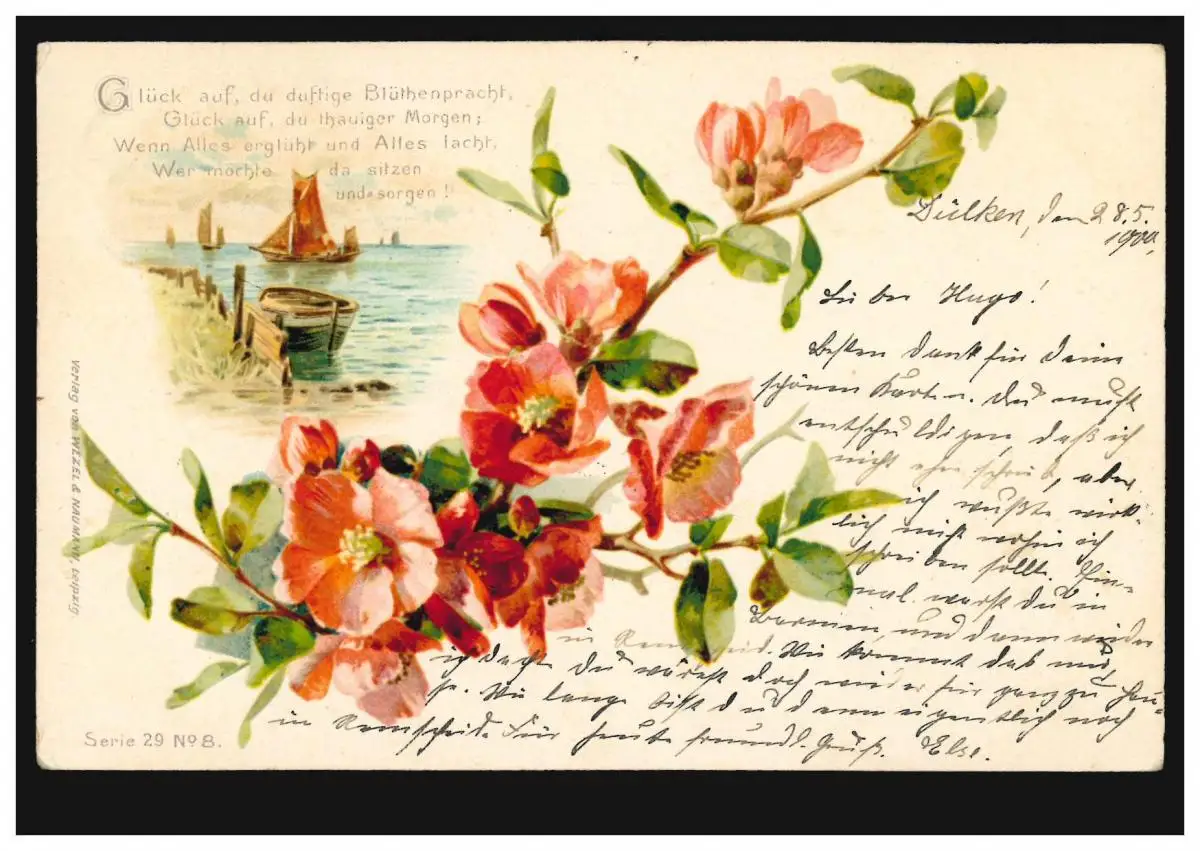 Glück auf, du duftige Blüthenpracht,
Glück auf, du thauiger Morgen;
Wenn Alles erglüht und Alles lacht,
Wer möchte da sitzen
und sorgen!
Dülken, den 28.5.
1900.
Lieber Hugo!
Besten Dank für Deine
schönen Karten. Du mußt
entschuldigen, daß ich
nicht eher schrieb, aber
ich wußte wirk-
lich nicht wohin ich
schreiben sollte. Ein-
mal warst Du in
Barmen, und dann wieder
in Remscheid. Wie kommt das nur,
ich dachte Du wärst doch wieder für ganz zu Hau-
se. Wie lange bist Du denn eigentlich noch
in Remscheid. Für heute freundl. Gruß. Else.
Verlag von WEZEL & NAUMANN, Leipzig.
Serie 29 No 8.